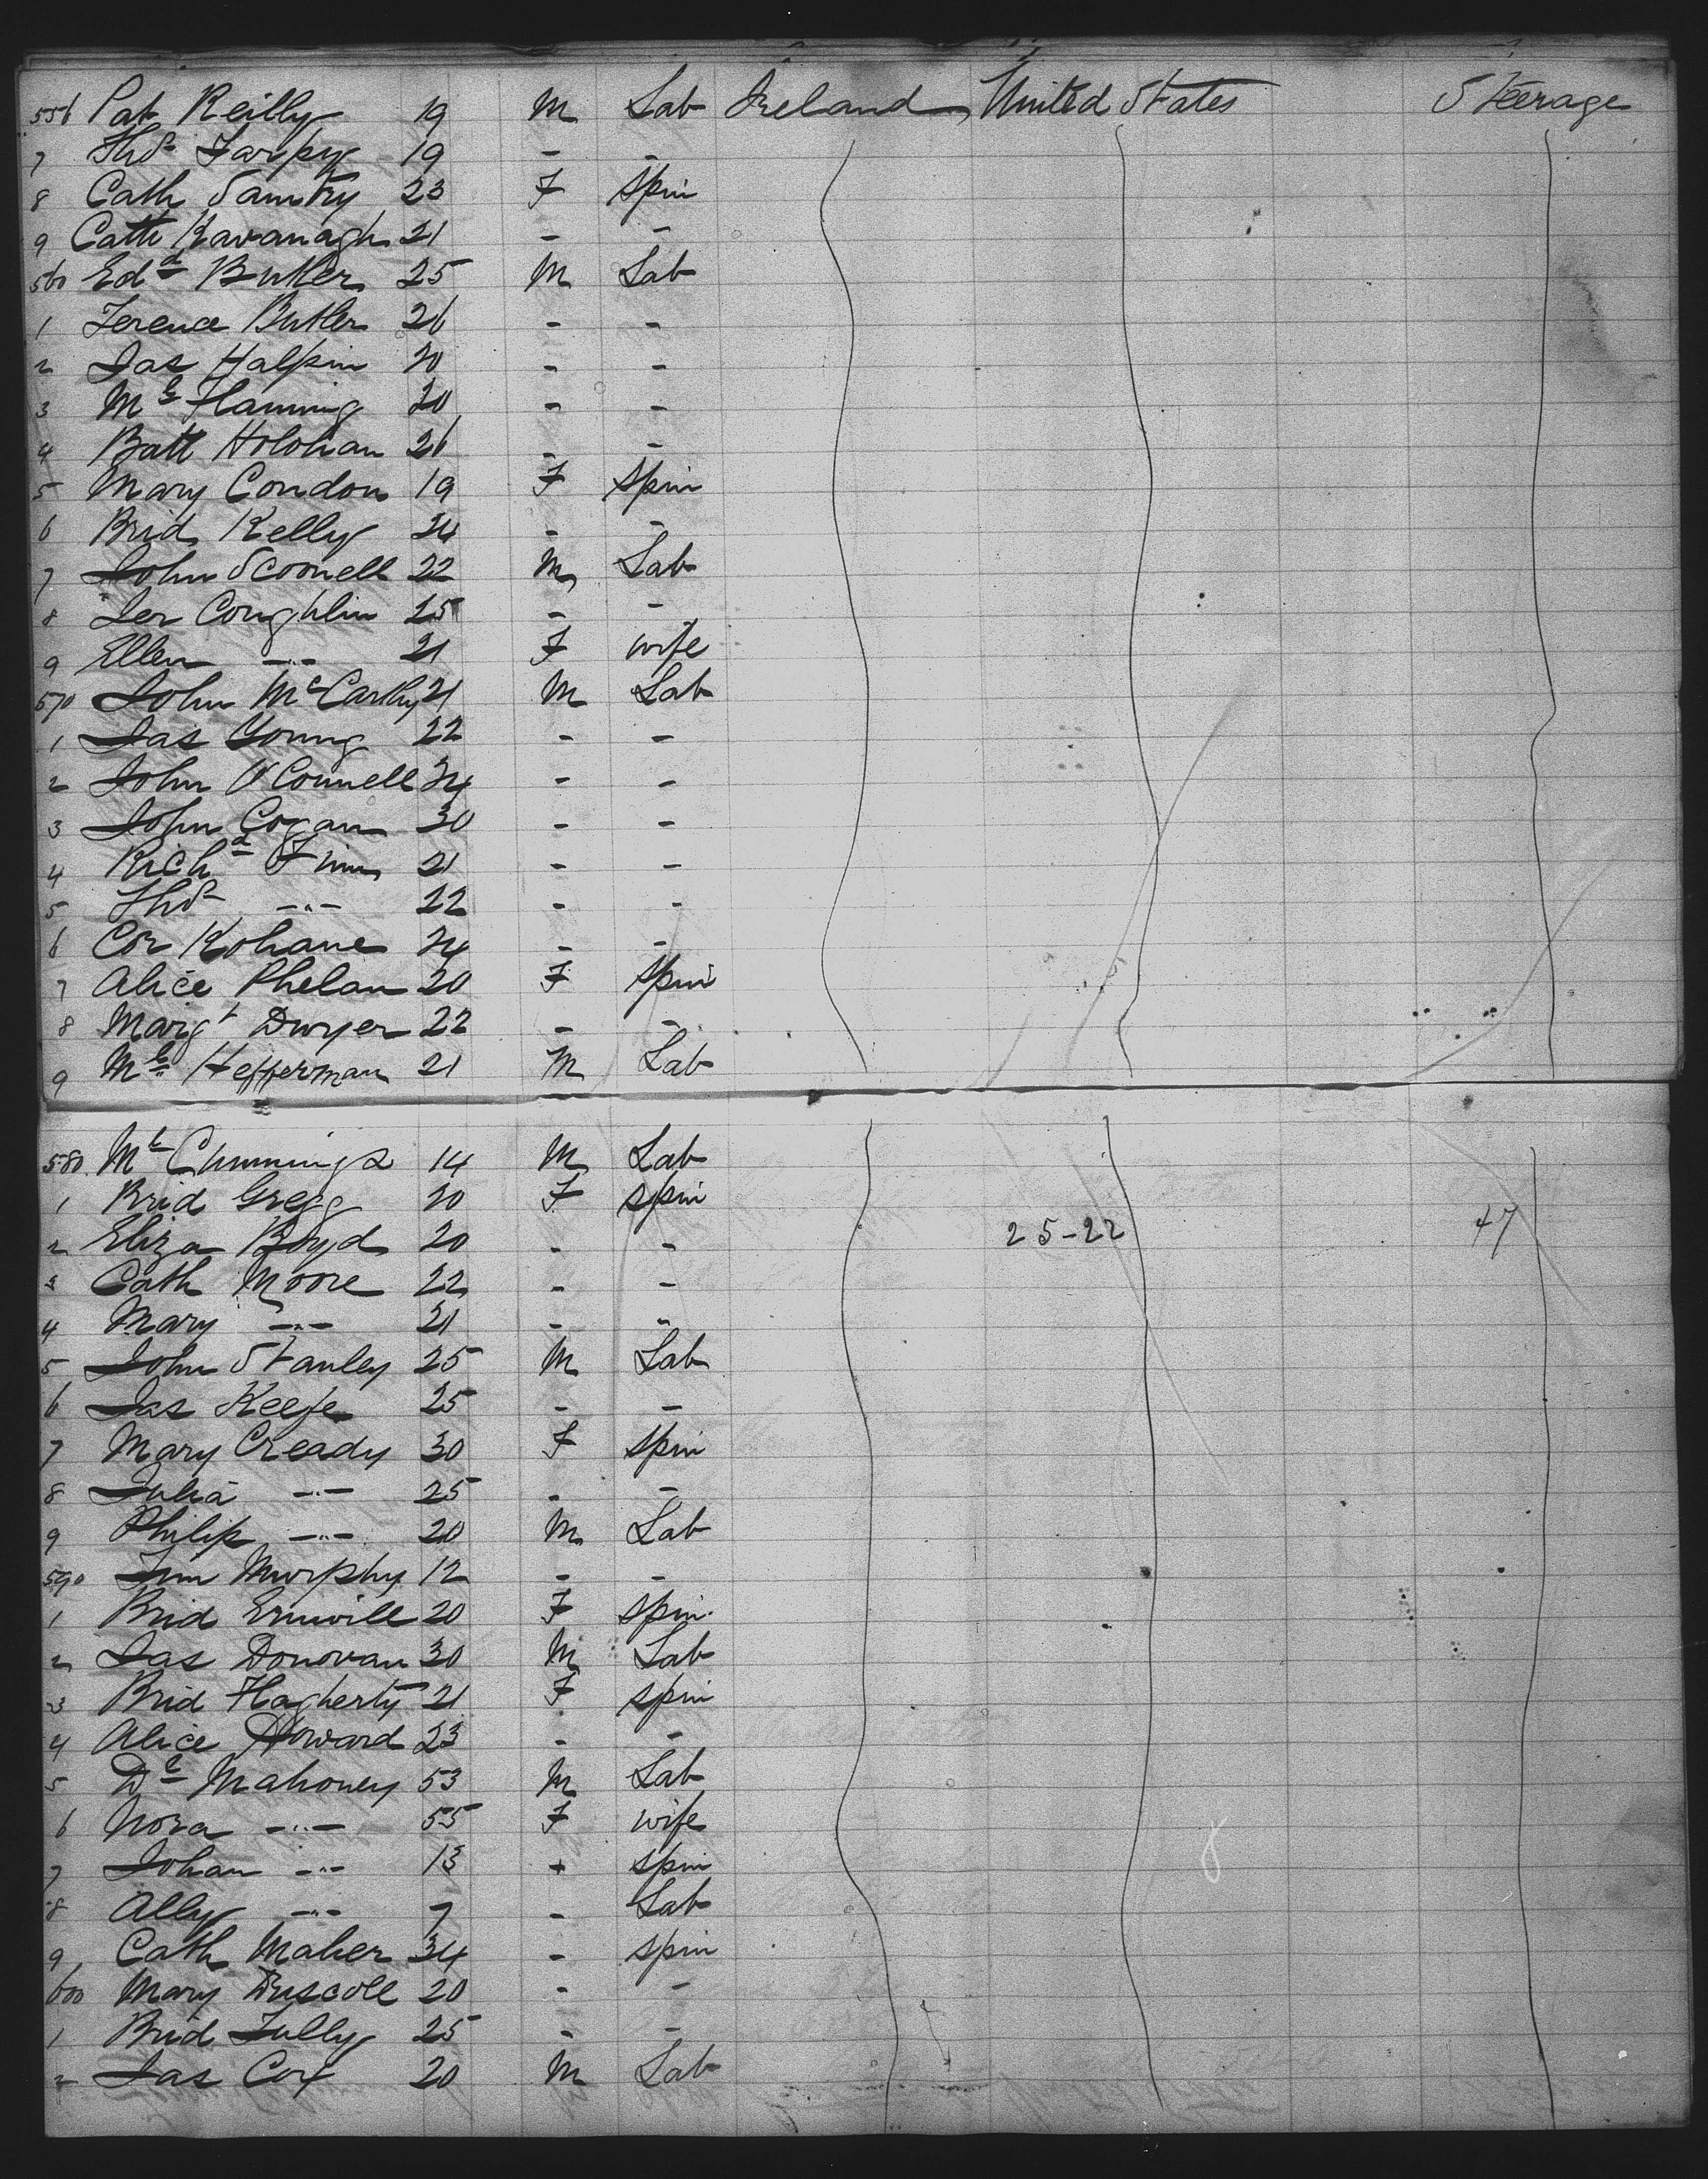 556 Pat Reilly 19 M Lab Ireland United States Steerage
7 Thos Tarpy 19 - -
8 Cath Samtry 23 F Spin
9 Cath Kavanagh 21 - -
560 Edd Butler 25 M Lab
1 Terence Butler 26 - -
2 Jas Halpin 20 - -
3 Ml Flanning 20 - -
4 Batt Holohan 26 - -
5 Mary Condon 19 F Spin
6 Brid Kelly 24 - -
7 John OConnell 22 M Lab
8 Jer Coughlin 25 - -
9 Ellen -"- 21 F wife
570 John McCarthy 21 M Lab
1 Jas Young 22 - -
2 John O'Connell 24 - -
3 John Cogan 30 - -
4 Richd Finn 21 - -
5 Thos -"- 22 - -
6 Cor Kohane 24 - -
7 Alice Phelan 20 F Spin
8 Margt Dwyer 22 - -
9 Ml Hefferman 21 M Lab
580 Ml Cummings 14 M Lab
1 Brid Gregg 20 F spin
2 Eliza Boyd 20 - - 25-22 47
3 Cath Moore 22 - -
4 Mary -"- 21 - "
5 John Stanley 25 M Lab
6 Jas Keefe 25 - -
7 Mary Cready 30 F spin
8 Julia -"- 25 - -
9 Philip -"- 20 M Lab
590 Jim Murphy 12 - -
1 Brid 20 F spin
2 Jas Donovan 30 M Lab
3 Brid Flagherty 21 F spin
4 Alice Howard 23 - -
5 Dl Mahoney 53 M Lab
6 Nora -"- 55 F wife
7 Johan -"- 13 - spin
8 Ally -"- 7 - Lab
9 Cath Maher 34 - spin
600 Mary Driscoll 20 - -
1 Brid Tully 25 - -
2 Jas Cox 20 M Lab